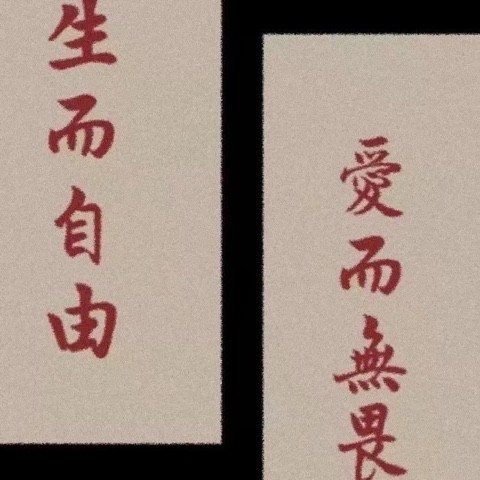 生而自由
愛而無畏